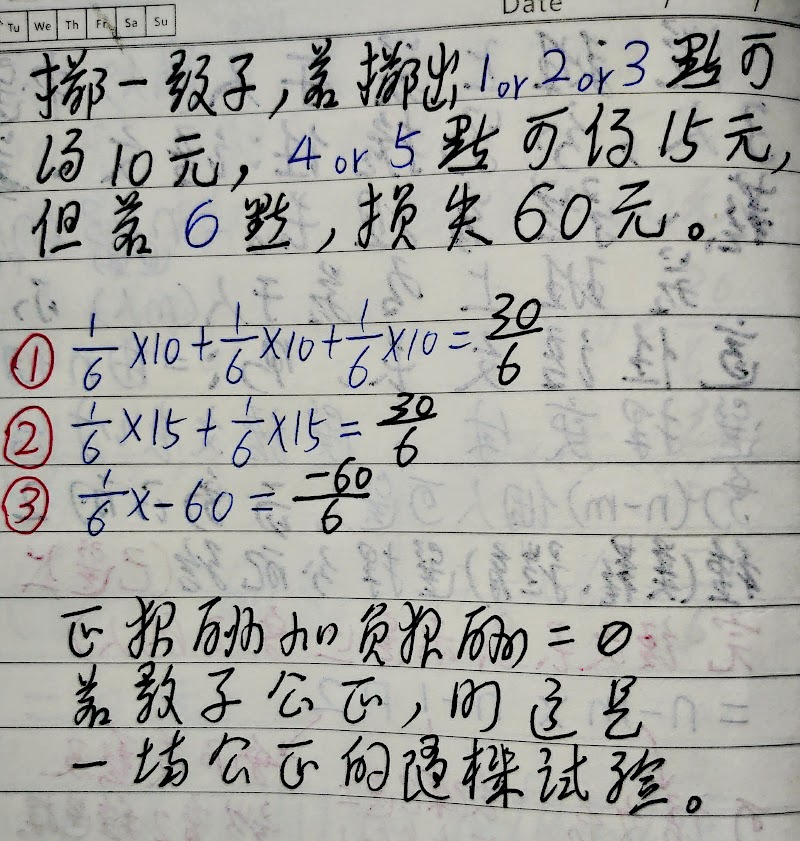 Date
Tu We Th Fr Sa Su
擲一骰子,若擲出1or2or3點可
得10元,4or5點可得15元,
但若6點,损失60元。
① 1/6×10+1/6×10+1/6×10=30/6
② 1/6×15+1/6×15=30/6
③ 1/6×-60=-60/6
正报酬加负报酬=0
若骰子公正,則這是
一場公正的隨機試驗。